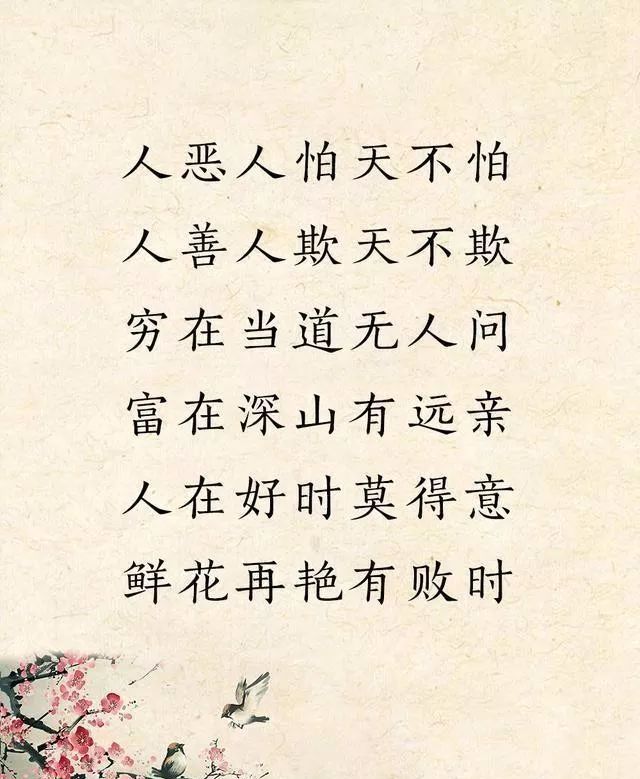 人恶人怕天不怕
人善人欺天不欺
穷在当道无人问
富在深山有远亲
人在好时莫得意
鲜花再艳有败时